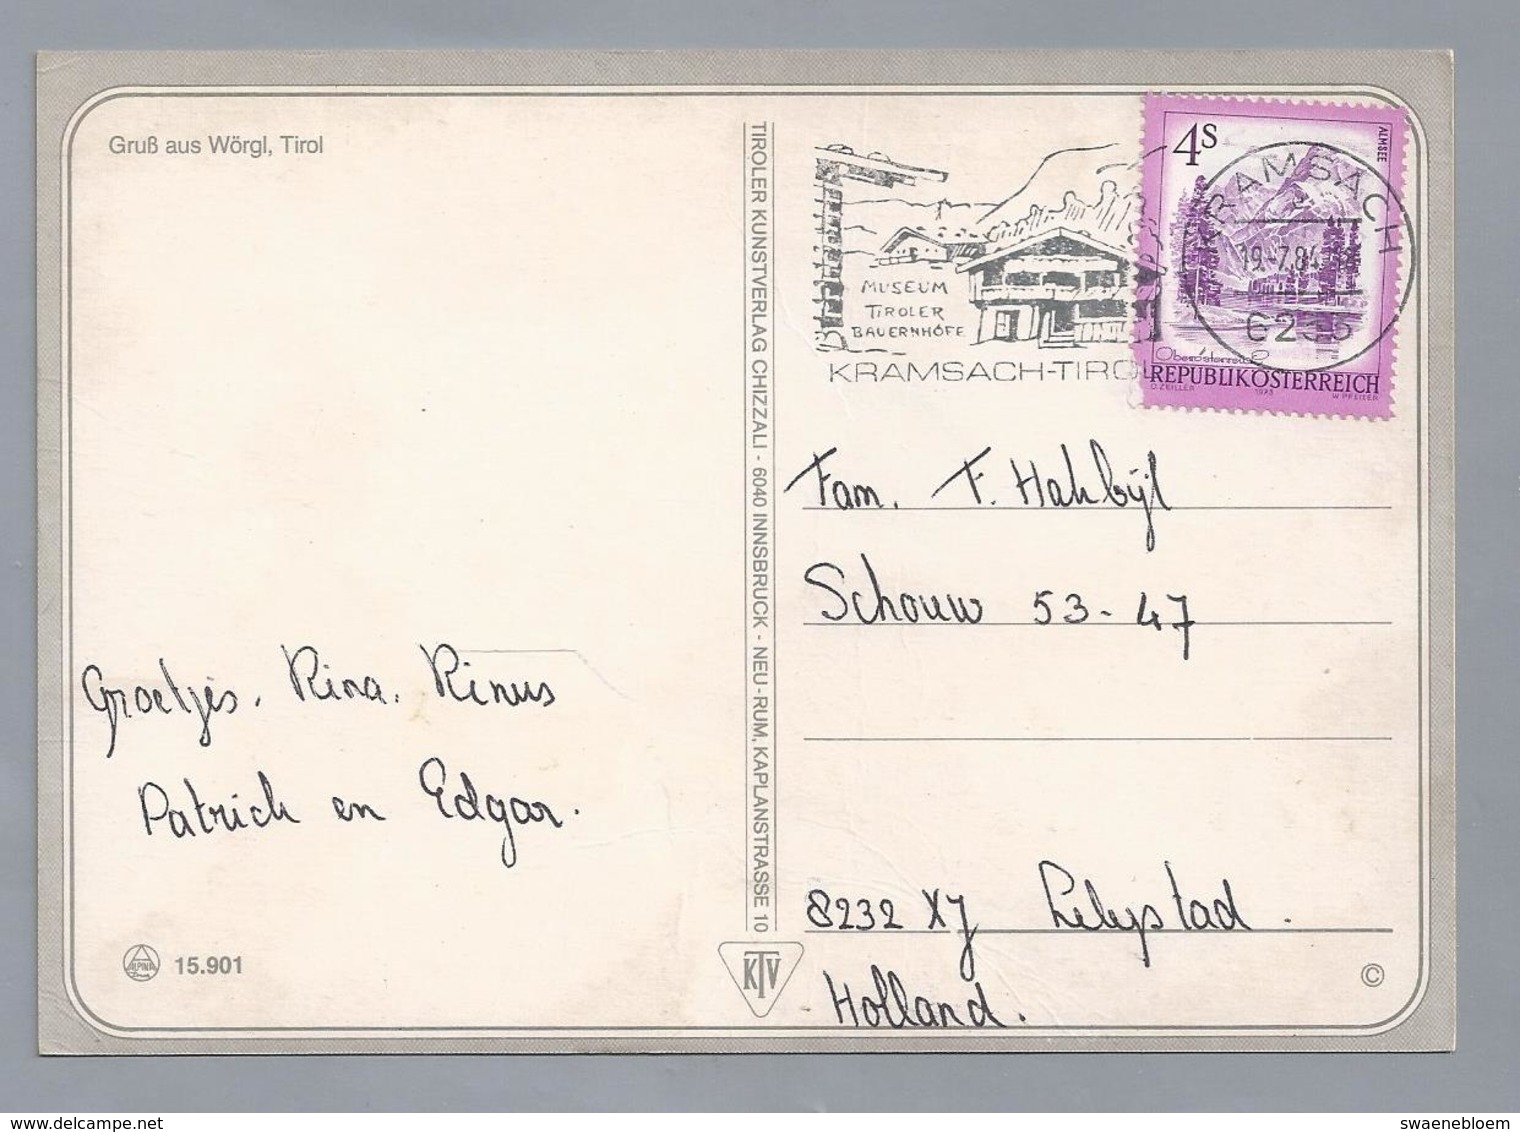 Gruß aus Wörgl, Tirol
Groetjes. Rina. Rinus
Patrick en Edgar.
ALPINA
15.901
TIROLER KUNSTVERLAG CHIZZALI - 6040 INNSBRUCK - NEU-RUM, KAPLANSTRASSE 10
KTV
MUSEUM
TIROLER
BAUERNHÖFE
KRAMSACH-TIROL
4S
ALMSEE
KRAMSACH
19.-7.84
6233
Oberösterreich
REPUBLIK ÖSTERREICH
O. ZEILLER 1973 W. PFEILER
Fam. F. Hakbijl
Schouw 53-47
8232 XJ Lelystad.
Holland.
©
www.delcampe.net
swaenebloem